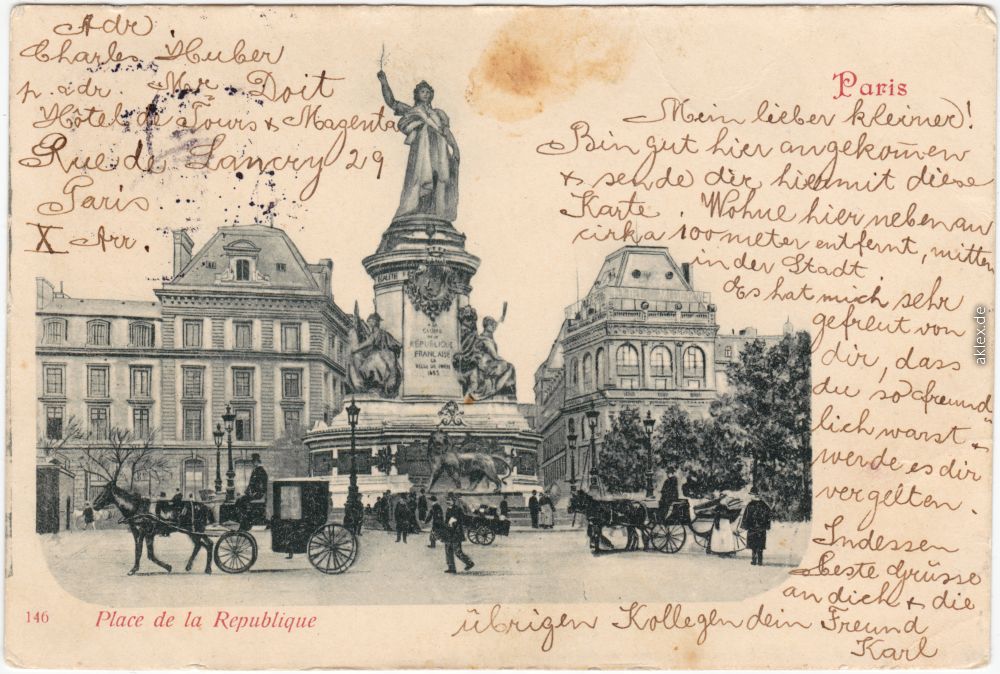 Adr
Charles Huber
p. adr. Mr. Doit
Hôtel de Tours & Magenta
Rue de Lancry 29
Paris
X Arr.
Paris
Mein lieber kleiner!
Bin gut hier angekom̄en
& sende dir hiermit diese
Karte. Wohne hier neben an
cirka 100 meter entfernt, mitten
in der Stadt
Es hat mich sehr
gefreut von
dir, dass
du so freund"
lich warst &
werde es dir
vergelten.
Indessen
beste Grüsse
an dich & die
übrigen Kollegen dein Freund
Karl
A GLOIRE
DE LA
RÉPUBLIQUE
FRANÇAISE
LA
VILLE DE PARIS
1883
146 Place de la Republique
aklex.de